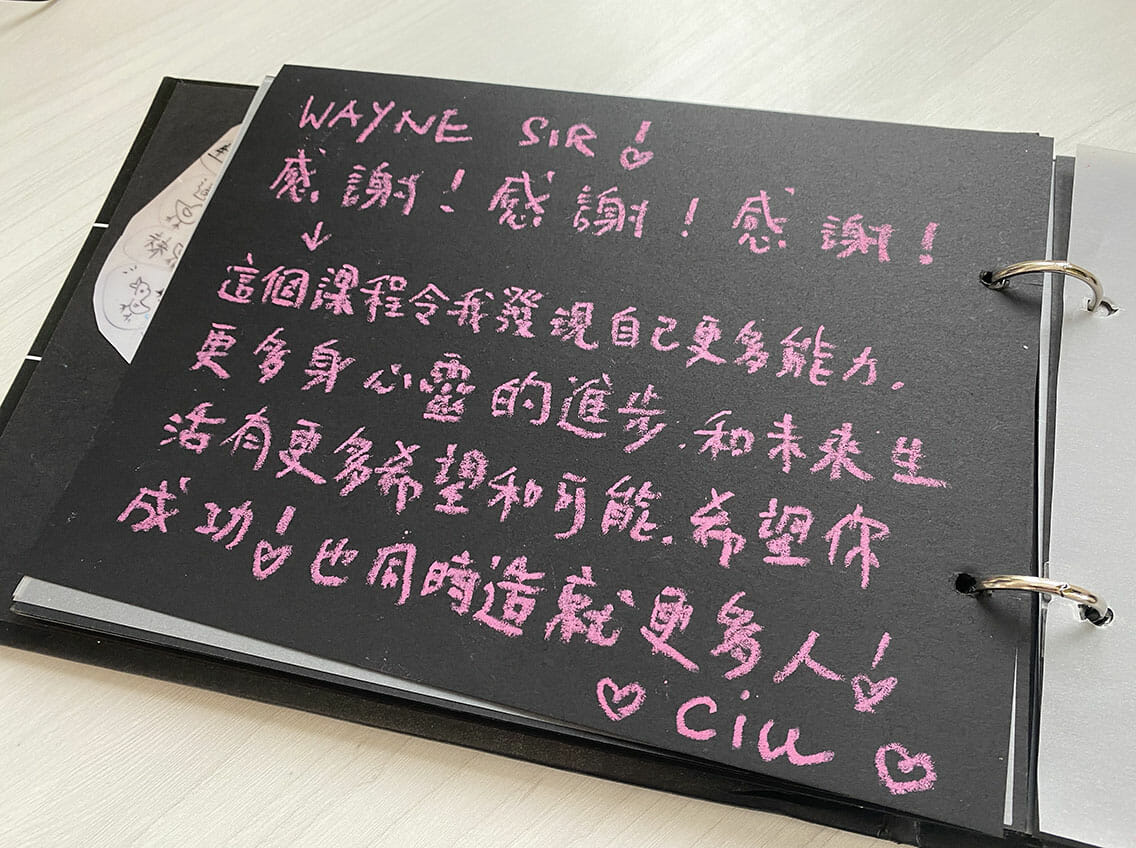 WAYNE SIR！
感謝！感謝！感謝！
這個課程令我發現自己更多能力，
更多身心靈的進步，和未來生
活有更多希望和可能，希望你
成功！也同時造就更多人！
Ciu